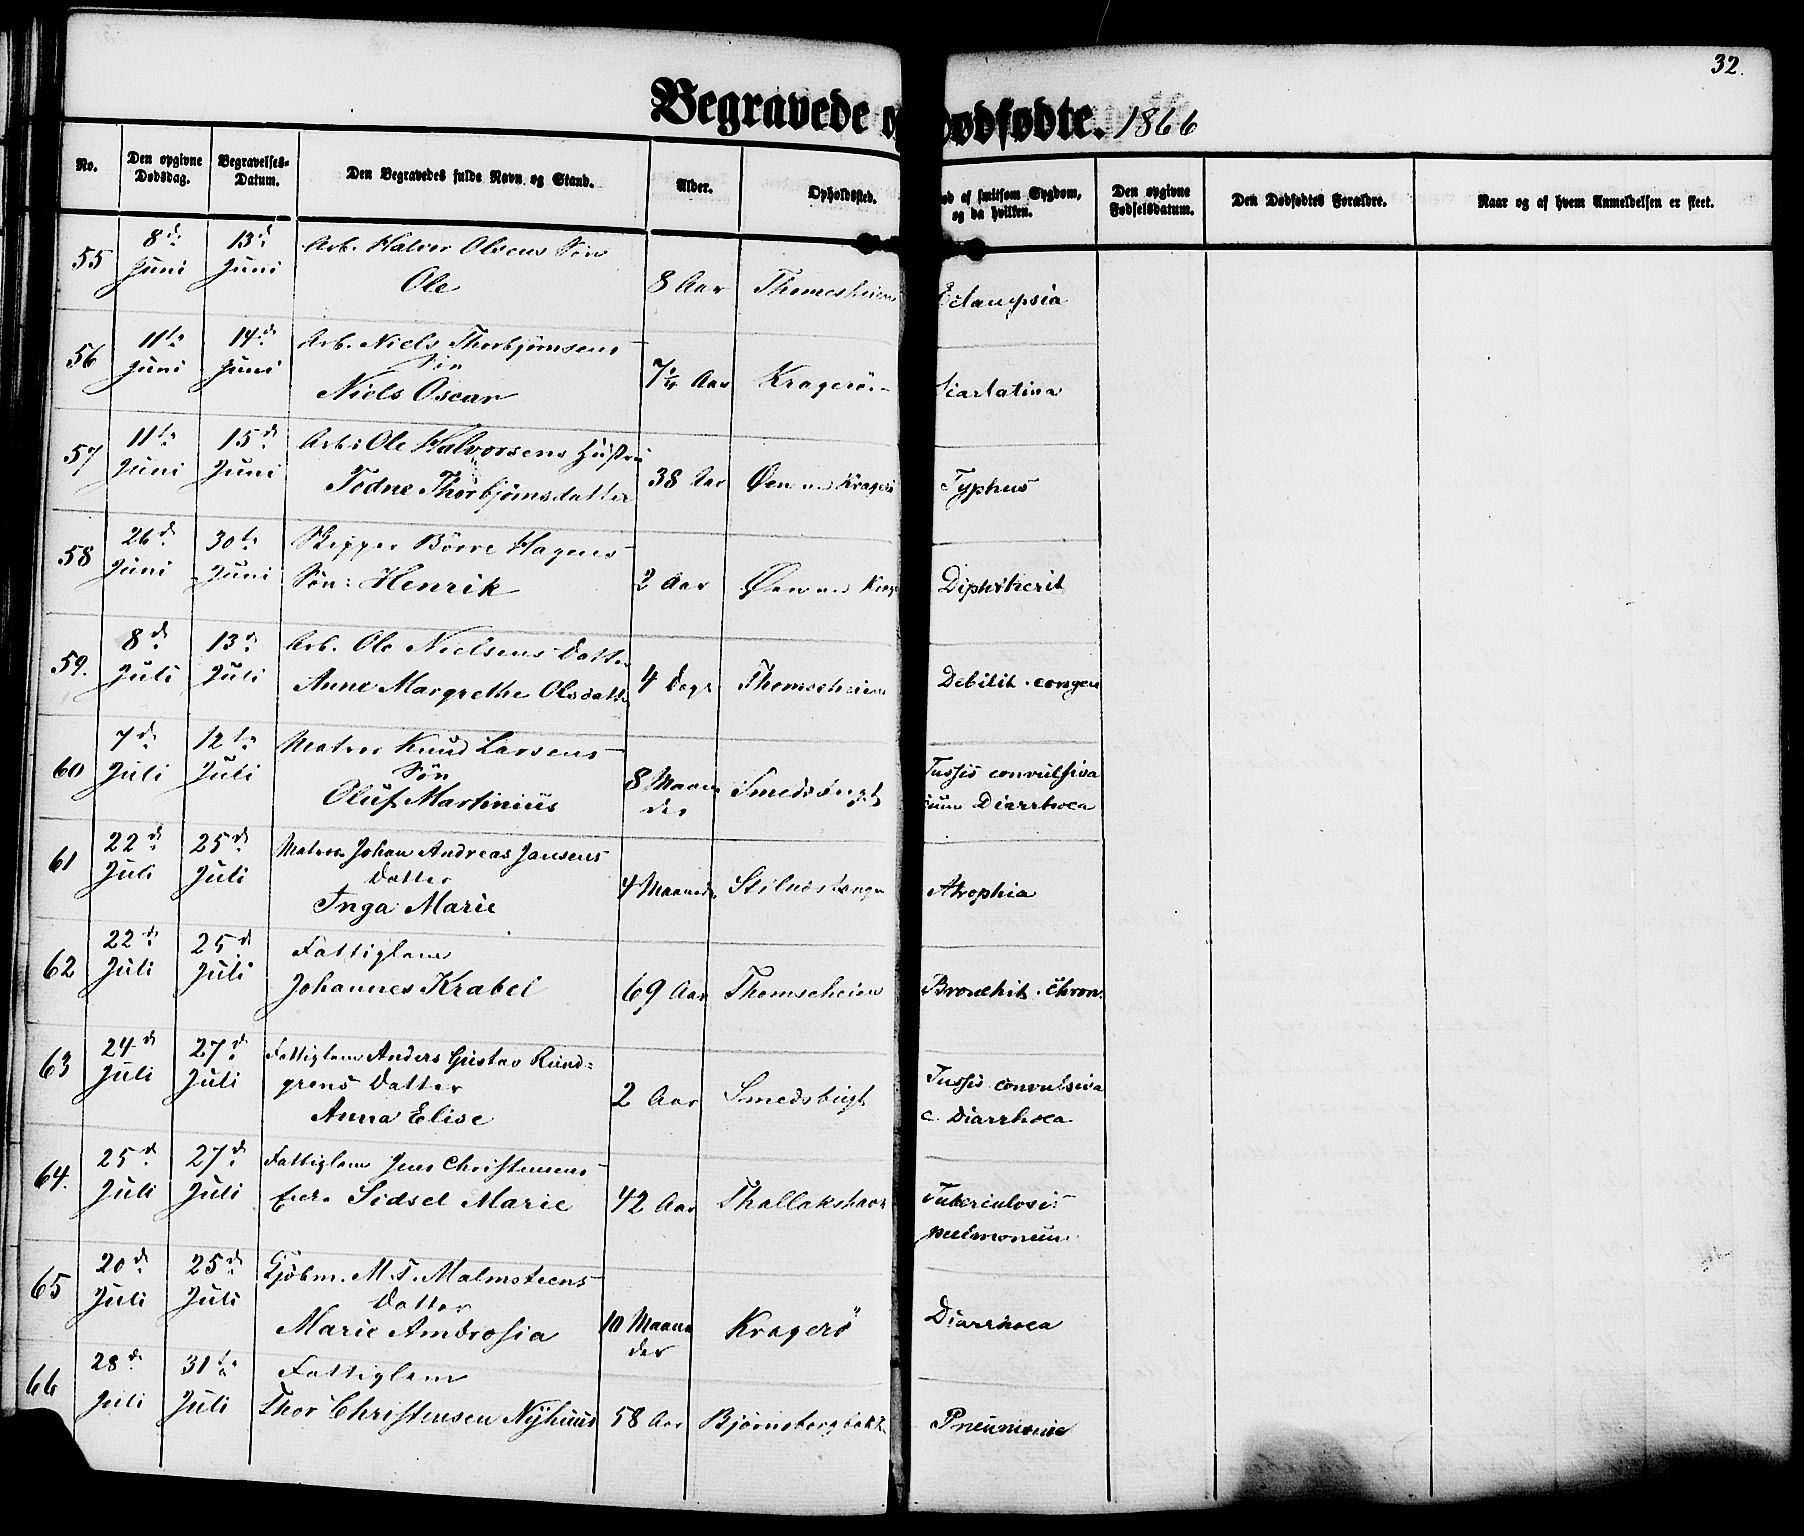 32.
Begravede og Dødfødte. 1866
No. | Den opgivne Dødsdag. | Begravelses-Datum. | Den Begravedes fulde Navn og Stand. | Alder. | Opholdssted. | af smitsom Sygdom, og da hvilken. | Den opgivne Fødselsdatum. | Den Dødfødtes Forældre. | Naar og af hvem Anmeldelsen er skeet.
55 | 8de Juni | 13de Juni | Arb. Halvor Olsens Søn Ole | 8 Aar | Thomesheien | Eclampsia
56 | 11te Juni | 14de Juni | Arb. Niels Thorbjørnsens Søn Niels Oscar | 7¼ Aar | Kragerö | Scarlatina
57 | 11te Juni | 15de Juni | Arb: Ole Halvorsens Hustru Todne Thorbjörnsdatter | 38 Aar | Øen ved Kragerö | Typhus
58 | 26de Juni | 30te Juni | Skipper Börre Hagens Søn: Henrik | 2 Aar | Øen ved Krag | Diphtherit
59. | 8de Juli | 13de Juli | Arb. Ole Nielsens Datter Anne Margrethe Olsdatt | 4 Dage | Thomesheien | Debilit. congen
60 | 7de Juli | 12te Juli | Matros Knud Larsens Søn Oluf Martinius | 8 Maaneder | Smedsbugt | Tussis convulsiva cum Diarrhoea
61 | 22de Juli | 25de Juli | Matros Johan Andreas Jansens Datter Inga Marie | 4 Maaneder | Stilnestangen | Atrophia
62 | 22de Juli | 25de Juli | Fattiglem Johannes Krabel | 69 Aar | Thomseheien | Bronchit. chron.
63 | 24de Juli | 27de Juli | Fattiglem Anders Gustav Rundgrens Datter Anna Elise | 2 Aar | Smedsbugt | Tussis convulsiva c. Diarrhoea
64. | 25de Juli | 27de Juli | Fattiglem Jens Christensens Enke Sidsel Marie | 42 Aar | Thallakshavn | Tuberculosis pulmonum
65 | 20de Juli | 25de Juli | Kjöbm. M. T. Malmsteens Datter Marie Ambrosia | 10 Maaneder | Kragerö | Diarrhoea
66 | 28de Juli | 31te Juli | Fattiglem Thor Christensen Nyhuus | 58 Aar | Bjørnsborgbakk | Pneumonie